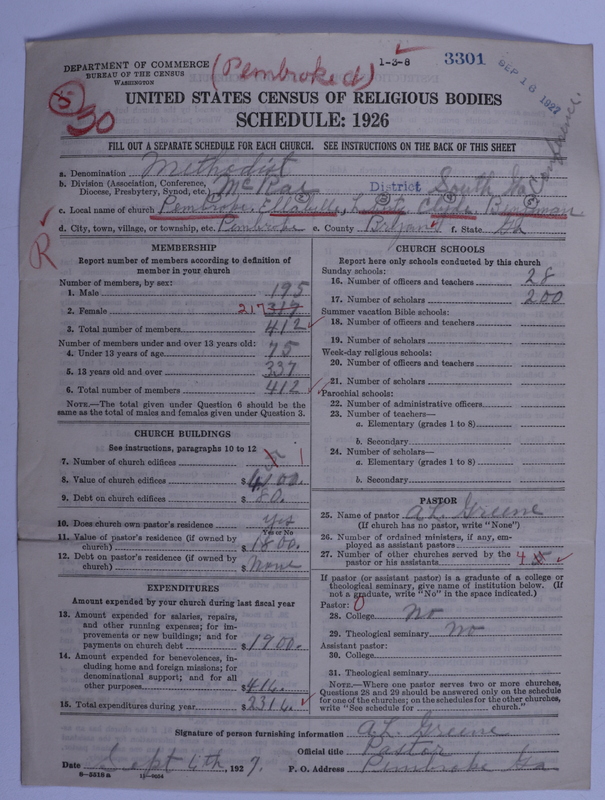 DEPARTMENT OF COMMERCE
BUREAU OF THE CENSUS
WASHINGTON
(Pembroke d)
1-3-8
3301
SEP 16 1927
5
50
UNITED STATES CENSUS OF RELIGIOUS BODIES
SCHEDULE: 1926
FILL OUT A SEPARATE SCHEDULE FOR EACH CHURCH. SEE INSTRUCTIONS ON THE BACK OF THIS SHEET
a. Denomination Methodist
b. Division (Association, Conference, Diocese, Presbytery, Synod, etc.) McRae District South Ga Conference.
c. Local name of church Pembroke, Ellabelle, Clyde,
d. City, town, village, or township, etc. Pembroke e. County Bryan f. State Ga
R
MEMBERSHIP
Report number of members according to definition of
member in your church
Number of members, by sex:
1. Male 195
2. Female 217 319
3. Total number of members 412
Number of members under and over 13 years old:
4. Under 13 years of age 75
5. 13 years old and over 337
6. Total number of members 412
NOTE.—The total given under Question 6 should be the
same as the total of males and females given under Question 3.
CHURCH BUILDINGS
See instructions, paragraphs 10 to 12
7. Number of church edifices 5 1
8. Value of church edifices $ 4100.
9. Debt on church edifices $ 80.
10. Does church own pastor's residence yes
Yes or No
11. Value of pastor's residence (if owned by
church) $ 1800.
12. Debt on pastor's residence (if owned by
church) $ None
EXPENDITURES
Amount expended by your church during last fiscal year
13. Amount expended for salaries, repairs,
and other running expenses; for im-
provements or new buildings; and for
payments on church debt $ 1900.
14. Amount expended for benevolences, in-
cluding home and foreign missions; for
denominational support; and for all
other purposes $ 414.
15. Total expenditures during year $ 2314.
CHURCH SCHOOLS
Report here only schools conducted by this church
Sunday schools:
16. Number of officers and teachers 28
17. Number of scholars 200
Summer vacation Bible schools:
18. Number of officers and teachers
19. Number of scholars
Week-day religious schools:
20. Number of officers and teachers
21. Number of scholars
Parochial schools:
22. Number of administrative officers
23. Number of teachers—
a. Elementary (grades 1 to 8)
b. Secondary
24. Number of scholars—
a. Elementary (grades 1 to 8)
b. Secondary
PASTOR
25. Name of pastor A.L. Greene
(If church has no pastor, write "None")
26. Number of ordained ministers, if any, em-
ployed as assistant pastors
27. Number of other churches served by the
pastor or his assistants 4 5
If pastor (or assistant pastor) is a graduate of a college or
theological seminary, give name of institution below. (If
not a graduate, write "No" in the space indicated.)
Pastor: 0
28. College No
29. Theological seminary No
Assistant pastor:
30. College
31. Theological seminary
NOTE.—Where one pastor serves two or more churches,
Questions 28 and 29 should be answered only on the schedule
for one of the churches; on the schedules for the other churches,
write "See schedule for church."
Signature of person furnishing information A.L. Greene
Official title Pastor
Date Sept 6th, 1927. P. O. Address Pembroke Ga
8-5518a